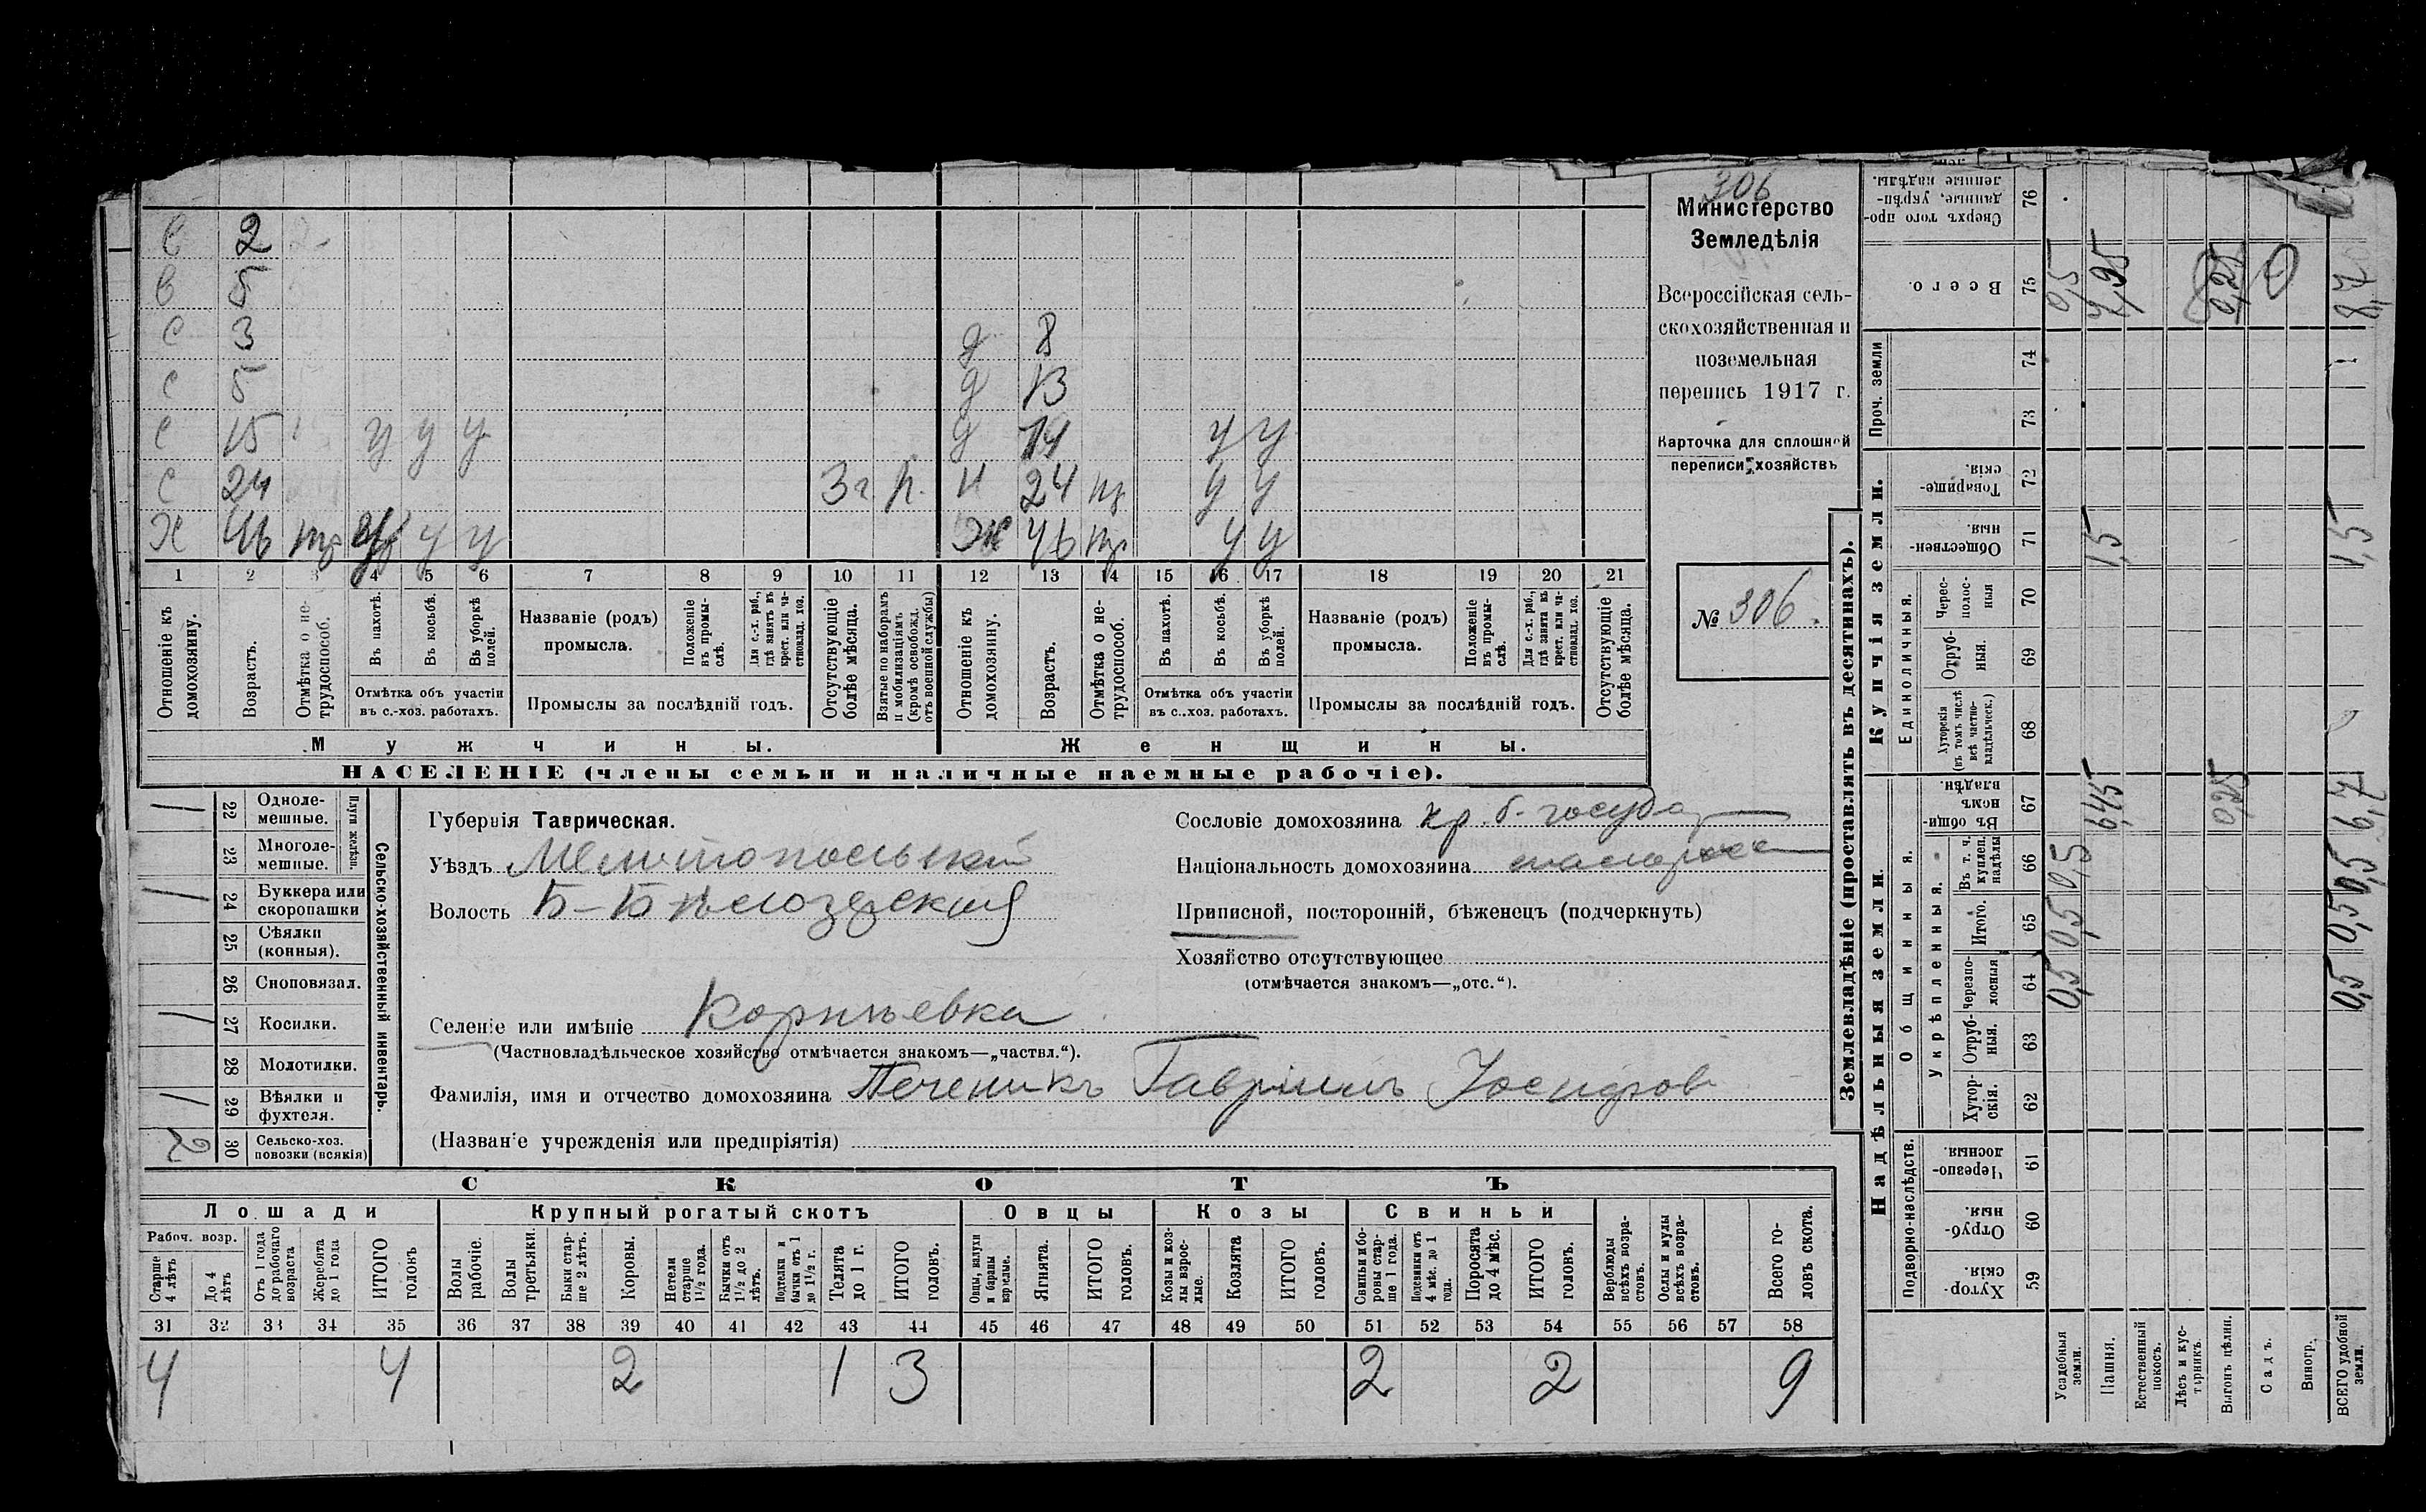 306
Министерство
Земледѣлія
Всероссійская сель-
скохозяйственная и
поземельная
перепись 1917 г.
Карточка для сплошной
переписи хозяйствъ
№ 306.
в 2
в 5
с 3 д 8
с 5 д 13
с 15 у у у д у у
с 24 3 г н 24 нр у у
х 46 нр у у ж 46 нр у у
1 2 3 4 5 6 7 8 9 10 11 12 13 14 15 16 17 18 19 20 21
Отношеніе къ домохозяину.
Возрастъ.
Отмѣтка о не-трудоспособ.
Въ пахотѣ.
Въ косьбѣ.
Въ уборкѣ полей.
Отмѣтка объ участіи въ с.-хоз. работахъ.
Названіе (родъ) промысла.
Положеніе въ промы-слѣ.
Для с.-х. раб., гдѣ занятъ въ крест. или ча-стновлад. хоз.
Промыслы за послѣдній годъ.
Отсутствующіе болѣе мѣсяца.
Взятые по наборамъ и мобилизаціямъ (кромѣ освобожд. отъ военной службы)
Отношеніе къ домохозяину.
Возрастъ.
Отмѣтка о не-трудоспособ.
Въ пахотѣ.
Въ косьбѣ.
Въ уборкѣ полей.
Отмѣтка объ участіи въ с.-хоз. работахъ.
Названіе (родъ) промысла.
Положеніе въ промы-слѣ.
Для с.-х. раб., гдѣ занята въ крест. или ча-стновлад. хоз.
Промыслы за послѣдній годъ.
Отсутствующіе болѣе мѣсяца.
Мужчины. Женщины.
НАСЕЛЕНІЕ (члены семьи и наличные наемные рабочіе).
Сельско-хозяйственный инвентарь.
Плуги желѣзн.
1 22 Одноле-мешные.
23 Многоле-мешные.
1 24 Буккера или скоропашки
25 Сѣялки (конныя).
26 Сноповязал.
1 27 Косилки.
28 Молотилки.
1 29 Вѣялки и фухтеля.
2 30 Сельско-хоз. повозки (всякія)
Губернія Таврическая.
Уѣздъ Мелитопольскій
Волость Б-Бѣлозерская
Селеніе или имѣніе Корнѣевка
(Частновладѣльческое хозяйство отмѣчается знакомъ—„частвл.“).
Фамилія, имя и отчество домохозяина Печеникъ Гавріилъ Іосифов
(Названіе учрежденія или предпріятія)
Сословіе домохозяина кр. б. госуда
Національность домохозяина малоросс
Приписной, посторонній, бѣженецъ (подчеркнуть)
Хозяйство отсутствующее
(отмѣчается знакомъ—„отс.“).
СКОТЪ
Лошади Крупный рогатый скотъ Овцы Козы Свиньи
Рабоч. возр.
Старше 4 лѣтъ
До 4 лѣтъ
Отъ 1 года до рабочаго возраста
Жеребята до 1 года
ИТОГО головъ
Волы рабочіе.
Волы третьяки.
Быки стар-ше 2 лѣтъ.
Коровы.
Нетели старше 1½ года.
Бычки отъ 1½ до 2 лѣтъ.
Подтелки и бычки отъ 1 до 1½ г.
Телята до 1 г.
ИТОГО головъ.
Овцы, валухи и бараны взрослые.
Ягнята.
ИТОГО головъ.
Козы и коз-лы взрос-лые.
Козлята
ИТОГО головъ.
Свиньи и бо-ровы стар-ше 1 года.
Подсвинки отъ 4 мѣс. до 1 года.
Поросята до 4 мѣс.
ИТОГО головъ.
Верблюды всѣхъ возра-стовъ.
Ослы и мулы всѣхъ возра-стовъ.
Всего го-ловъ скота.
31 32 33 34 35 36 37 38 39 40 41 42 43 44 45 46 47 48 49 50 51 52 53 54 55 56 57 58
4 4 2 1 3 2 2 9
Землевладѣніе (проставлять въ десятинахъ).
Надѣльныя земли. Купчія земли. Проч. земли
Подворно-наслѣдств. Общинныя. Единоличныя.
Укрѣпленныя.
Хутор-скія. 59
Отруб-ныя. 60
Черезпо-лосныя. 61
Хутор-скія. 62
Отруб-ныя. 63
Черезпо-лосныя 64
Итого. 65
Въ т. ч. куплен. надѣлы 66
Въ общи-номъ владѣн. 67
Хуторскія (въ томъ числѣ всѣ частно-владѣльческ.) 68
Отруб-ныя. 69
Черес-полос-ныя 70
Обществен-ныя 71
Товарище-скія. 72
73
74
Всего. 75
Сверхъ того про-данные, укрѣп-ленные надѣлы. 76
Усадебныя земли. 0,5 0,5 0,5 0,5
Пашня. 6,45 1,5 7,95
Естественный покосъ.
Лѣсъ и кус-тарникъ.
Выгонъ цѣлин. 0,25 0,25
Садъ. 0
Виногр.
ВСЕГО удобной земли. 0,5 0,5 0,5 6,7 1,5 8,7